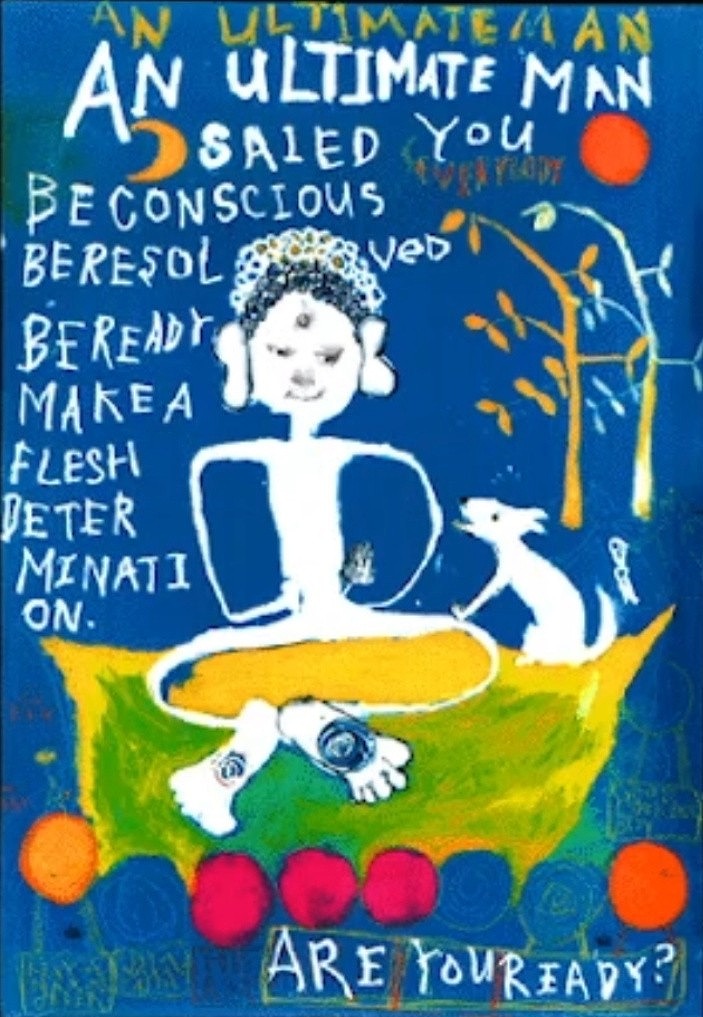 AN ULTIMATE MAN
AN ULTIMATE MAN
SAIED YOU
EVERYBODY
BECONSCIOUS
BERESOLVED
BEREADY
MAKE A
FLESH
DETER
MINATI
ON.
ARE YOU READY?